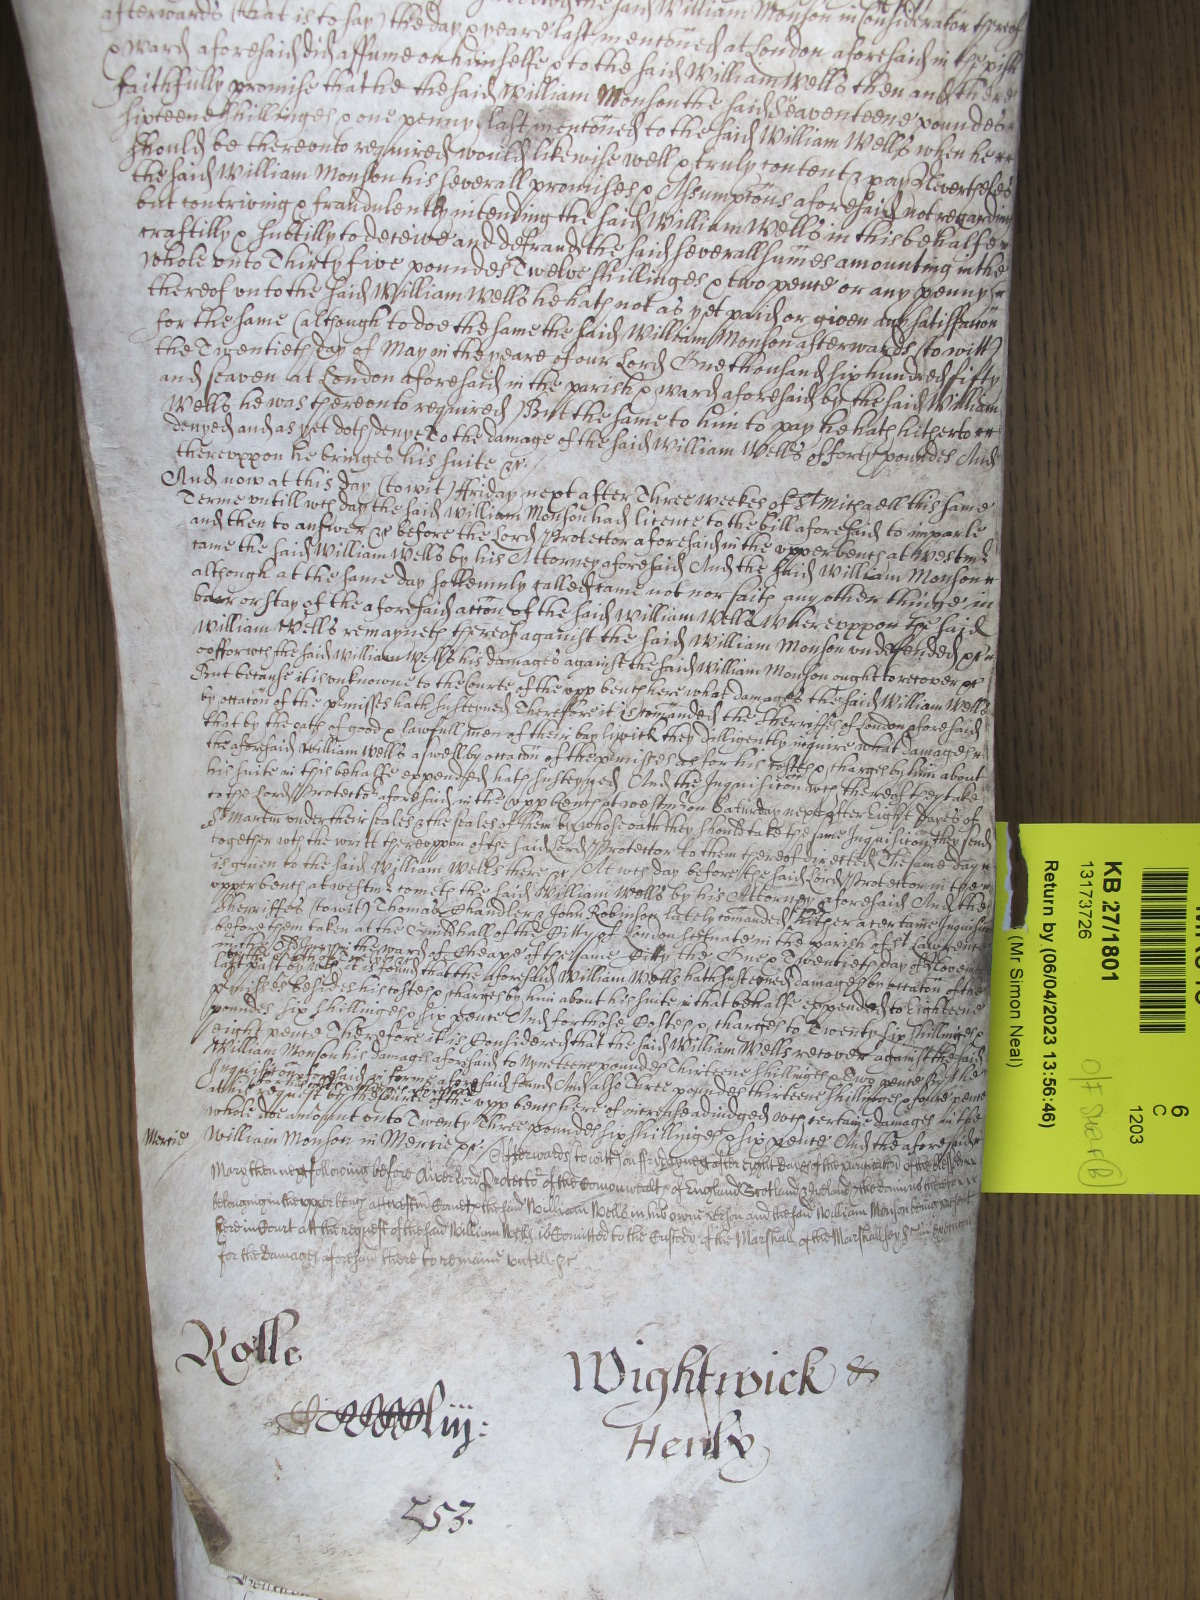 the said William Monson in Consideration thereof
afterwards (that is to say) the day & yeare last mentoned at London aforesaid in the pish
& ward aforesaid did assume on himselfe & to the said William Wells then and there
faithfully promise that he the said William Monson the said Seaventeene poundes
sixteene shillinges & one penny last mentoned to the said William Wells when he
should be thereonto required would likewise well & truly content & pay Neverthelesse
the said William Monson his severall promises & Assumptons aforesaid not regarding
but contriving & fraudulently intending the said William Wells in this behalfe
craftilly & subtilly to deceive and defraud the said severall sumes amounting in the
whole vnto Thirty five poundes Twelve shillinges & two pence or any penny
thereof vnto the said William Wells he hath not as yet paid or given any satisfacton
for the same (although to doe the same the said William Monson afterwards (to witt)
the Twentieth day of May in the yeare of our Lord One thousand six hundred fifty
and seaven at London aforesaid in the parish & ward aforesaid by the said William
Wells he was thereonto required) But the same to him to pay he hath hitherto
denyed and as yet doth denye To the damage of the said William Wells of forty poundes And
therevppon he bringes his suite &c
And now at this day (to wit) ffriday next after Three weekes of St Michaell this same
Terme vntill wch day the said William Monson had licence to the bill aforesaid to imparle
and then to answer &c before the Lord Protector aforesaid in the vpper bench at Westmr
came the said William Wells by his Attorney aforesaid And the said William Monson
although at the same day sollemnly called came not nor saith any other thinge in
barr or stay of the aforesaid acton of the said William Wells Wherevppon the said
William Wells remayneth thereof against the said William Monson vndeffended &c
wherefore the said William Wells his damages against the said William Monson ought to recover &c
But because it is vnknowne to the Courte of the vpp bench here what damages the said William Wells
by occaton of the pmisses hath susteyned Therefore it is comanded the Sherriffes of London aforesaid
that by the oath of good & lawfull men of their bayliwick they dilligently inquire what damages
the aforesaid William Wells aswell by occaton of the pmisses as for his costes & charges by him about
his suite in this behalfe expended hath susteyned And the Inquisicon wch thereof they take
to the Lord Protector aforesaid in the vpp bench at westmr on Saturday next after Eight dayes of
St Martin vnder their seales & the seales of them by whose oath they should take the same Inquisicon they send
together wth the writt therevppon of the said Lord Protector to them thereof directed The same day
is given to the said William Wells there &c At wch day before the said Lord Protector in the
vpper bench at westmr cometh the said William Wells by his Attorney aforesaid And the
Sherriffes (to wit) Thomas Chandler & John Robinson lately comanded hither a certaine Inquisicon
before them taken at the Guildhall of the Citty of London scituate in the parish of St Lawrence
in the Ward of Cheape of the same Citty the One & Twentieth day of November
last past by wch it is found that the aforesaid William Wells hath susteyned damages by occaton of the
pmisses besides his costes & charges by him about his suite in that behalfe expended to Eighteene
poundes six shillinges & six pence And for those Costes & charges to Twenty six shillinges &
eight pence Therefore it is Considered that the said William Wells recover against the said
William Monson his damages aforesaid to Nyneteene poundes Thirteene shillinges & Two pence By the
Inquisicon aforesaid in forme aforesaid found And also Three poundes thirteene shillinges & foure pence
at his request by the Court of the vpp bench here of increase adiudged wch certaine damages in the
whole doe amount vnto Twenty Three poundes six shillinges & six pence And the aforesaid
Mercie William Monson in Mercie &c Afterwards to witt on ffryday next after eight dayes of the purificacon of the blessed
Mary then next following before Oliver Lord Protector of the Comonwealth of England Scotland & Ireland & the dominions thereto
belonging in the vpper bench att westmr Cometh the said William Wells in his owne person and the said William Monson being present
here in Court att the request of the said William Wells is Comitted to the Custody of the Marshall of the Marshallsey &c in execution
for the damages aforesaid there to remaine vntill &c
Rolle
Wightwick &
liij:
Henly
553.
KB 27/1801
13173726
Return by (06/04/2023 13:56:46)
(Mr Simon Neal)
6
C
1203